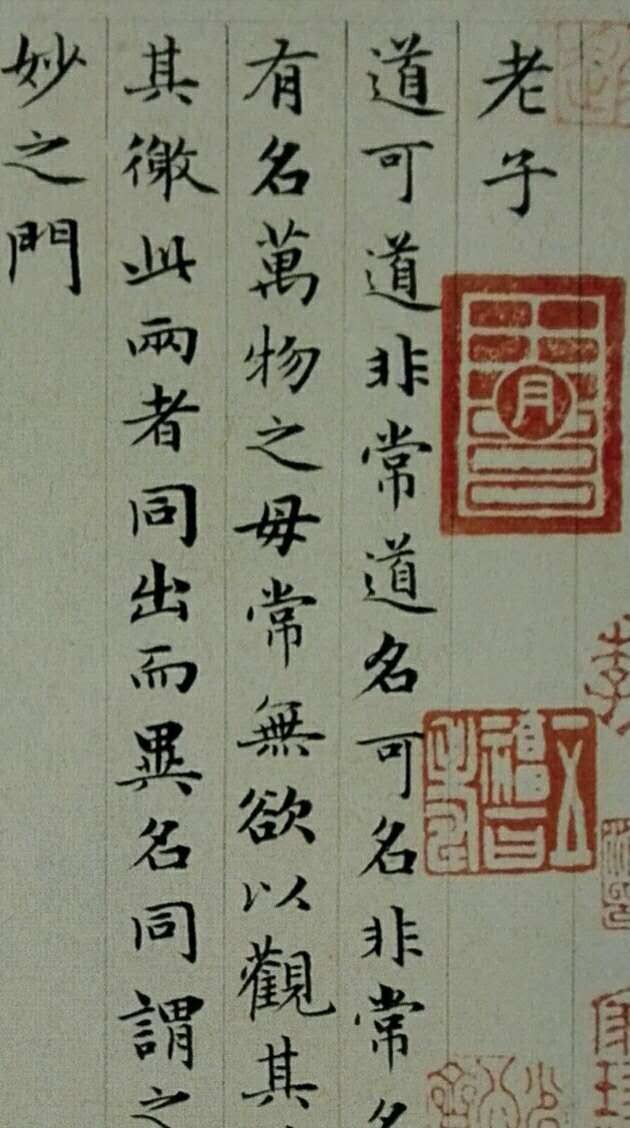 老子
道可道非常道名可名非常名
有名萬物之母常無欲以觀其
其徼此兩者同出而異名同謂之
妙之門
月
五福